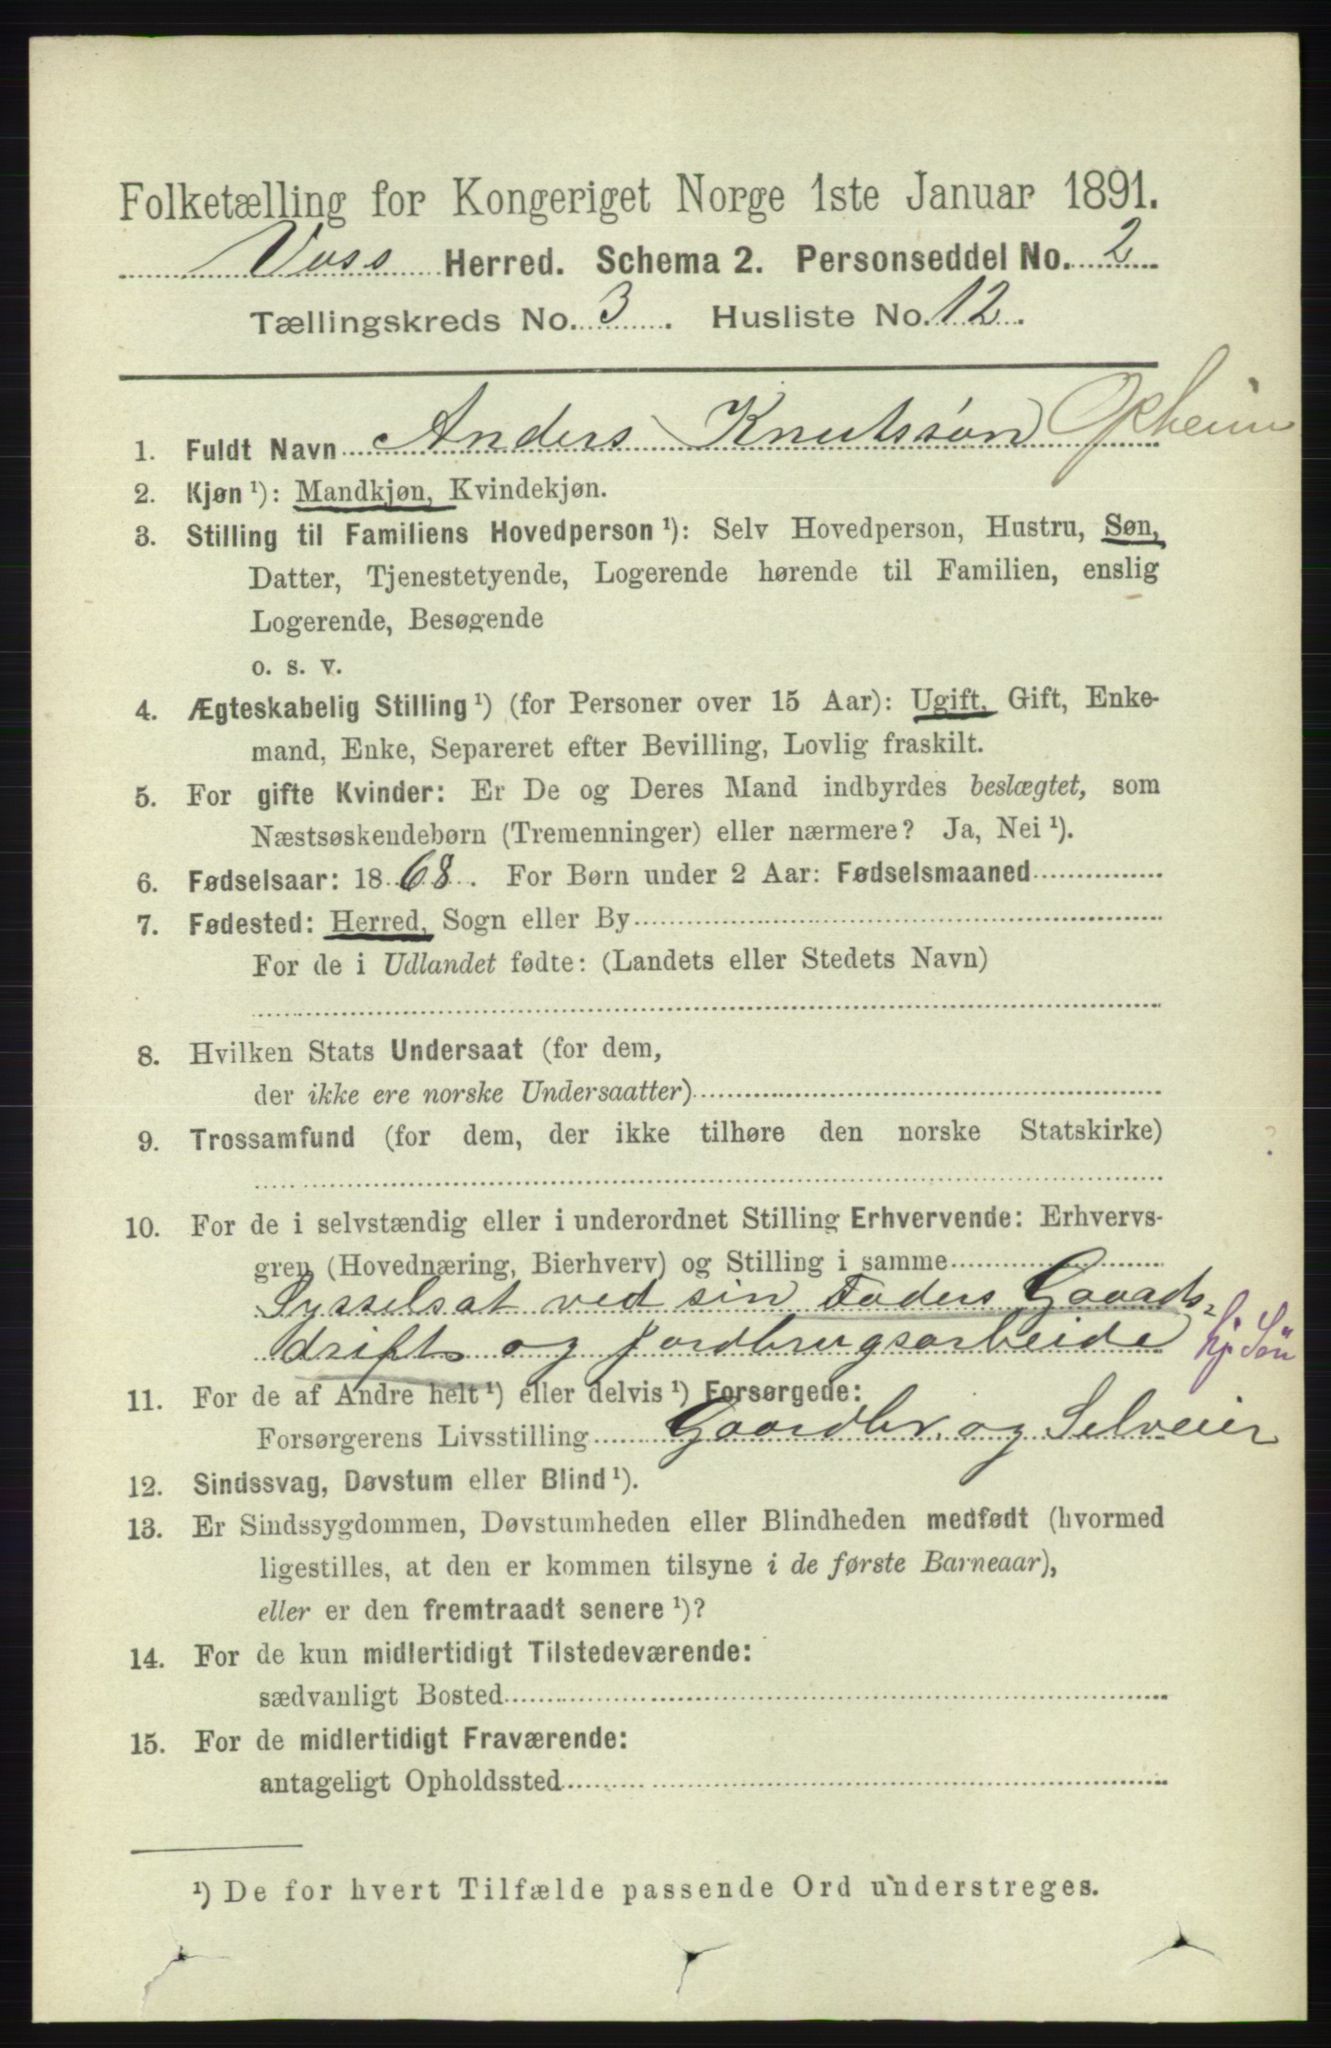 Folketælling for Kongeriget Norge 1ste Januar 1891.
Voss Herred. Schema 2. Personseddel No. 2
Tællingskreds No. 3. Husliste No. 12.
1. Fuldt Navn Anders Knutssøn Opheim
2. Kjøn ¹): Mandkjøn, Kvindekjøn.
3. Stilling til Familiens Hovedperson ¹): Selv Hovedperson, Hustru, Søn,
Datter, Tjenestetyende, Logerende hørende til Familien, enslig
Logerende, Besøgende
o. s. v.
4. Ægteskabelig Stilling ¹) (for Personer over 15 Aar): Ugift, Gift, Enke-
mand, Enke, Separeret efter Bevilling, Lovlig fraskilt.
5. For gifte Kvinder: Er De og Deres Mand indbyrdes beslægtet, som
Næstsøskendebørn (Tremenninger) eller nærmere? Ja, Nei ¹).
6. Fødselsaar: 1868. For Børn under 2 Aar: Fødselsmaaned
7. Fødested: Herred, Sogn eller By
For de i Udlandet fødte: (Landets eller Stedets Navn)
8. Hvilken Stats Undersaat (for dem,
der ikke ere norske Undersaatter)
9. Trossamfund (for dem, der ikke tilhøre den norske Statskirke)
?
10. For de i selvstændig eller i underordnet Stilling Erhvervende: Erhvervs-
gren (Hovednæring, Bierhverv) og Stilling i samme
Sysselsat ved sin Faders Gaards-
drift og jordbrugsarbeide hj. Søn
11. For de af Andre helt ¹) eller delvis ¹) Forsørgede:
Forsørgerens Livsstilling Gaardbr. og Selveier
12. Sindssvag, Døvstum eller Blind ¹).
13. Er Sindssygdommen, Døvstumheden eller Blindheden medfødt (hvormed
ligestilles, at den er kommen tilsyne i de første Barneaar),
eller er den fremtraadt senere ¹)?
14. For de kun midlertidigt Tilstedeværende:
sædvanligt Bosted
15. For de midlertidigt Fraværende:
antageligt Opholdssted
¹) De for hvert Tilfælde passende Ord understreges.